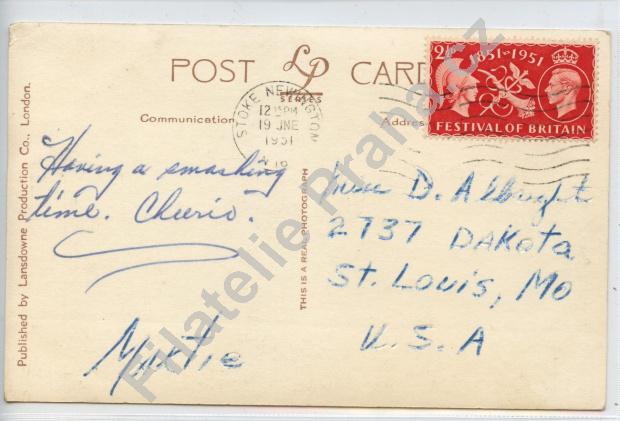 POST LP CARD
SERIES
Communication
Address
STOKE NEWINGTON
12 PM
19 JNE
1951
N.16
2½ 1851-1951
FESTIVAL OF BRITAIN
Having a smashing
time. Cheerio.
Myrtie
D. Albright
2737 DAKOTA
St. Louis, Mo
U.S.A
Published by Lansdowne Production Co., London.
THIS IS A REAL PHOTOGRAPH
Filatelie Praha.cz